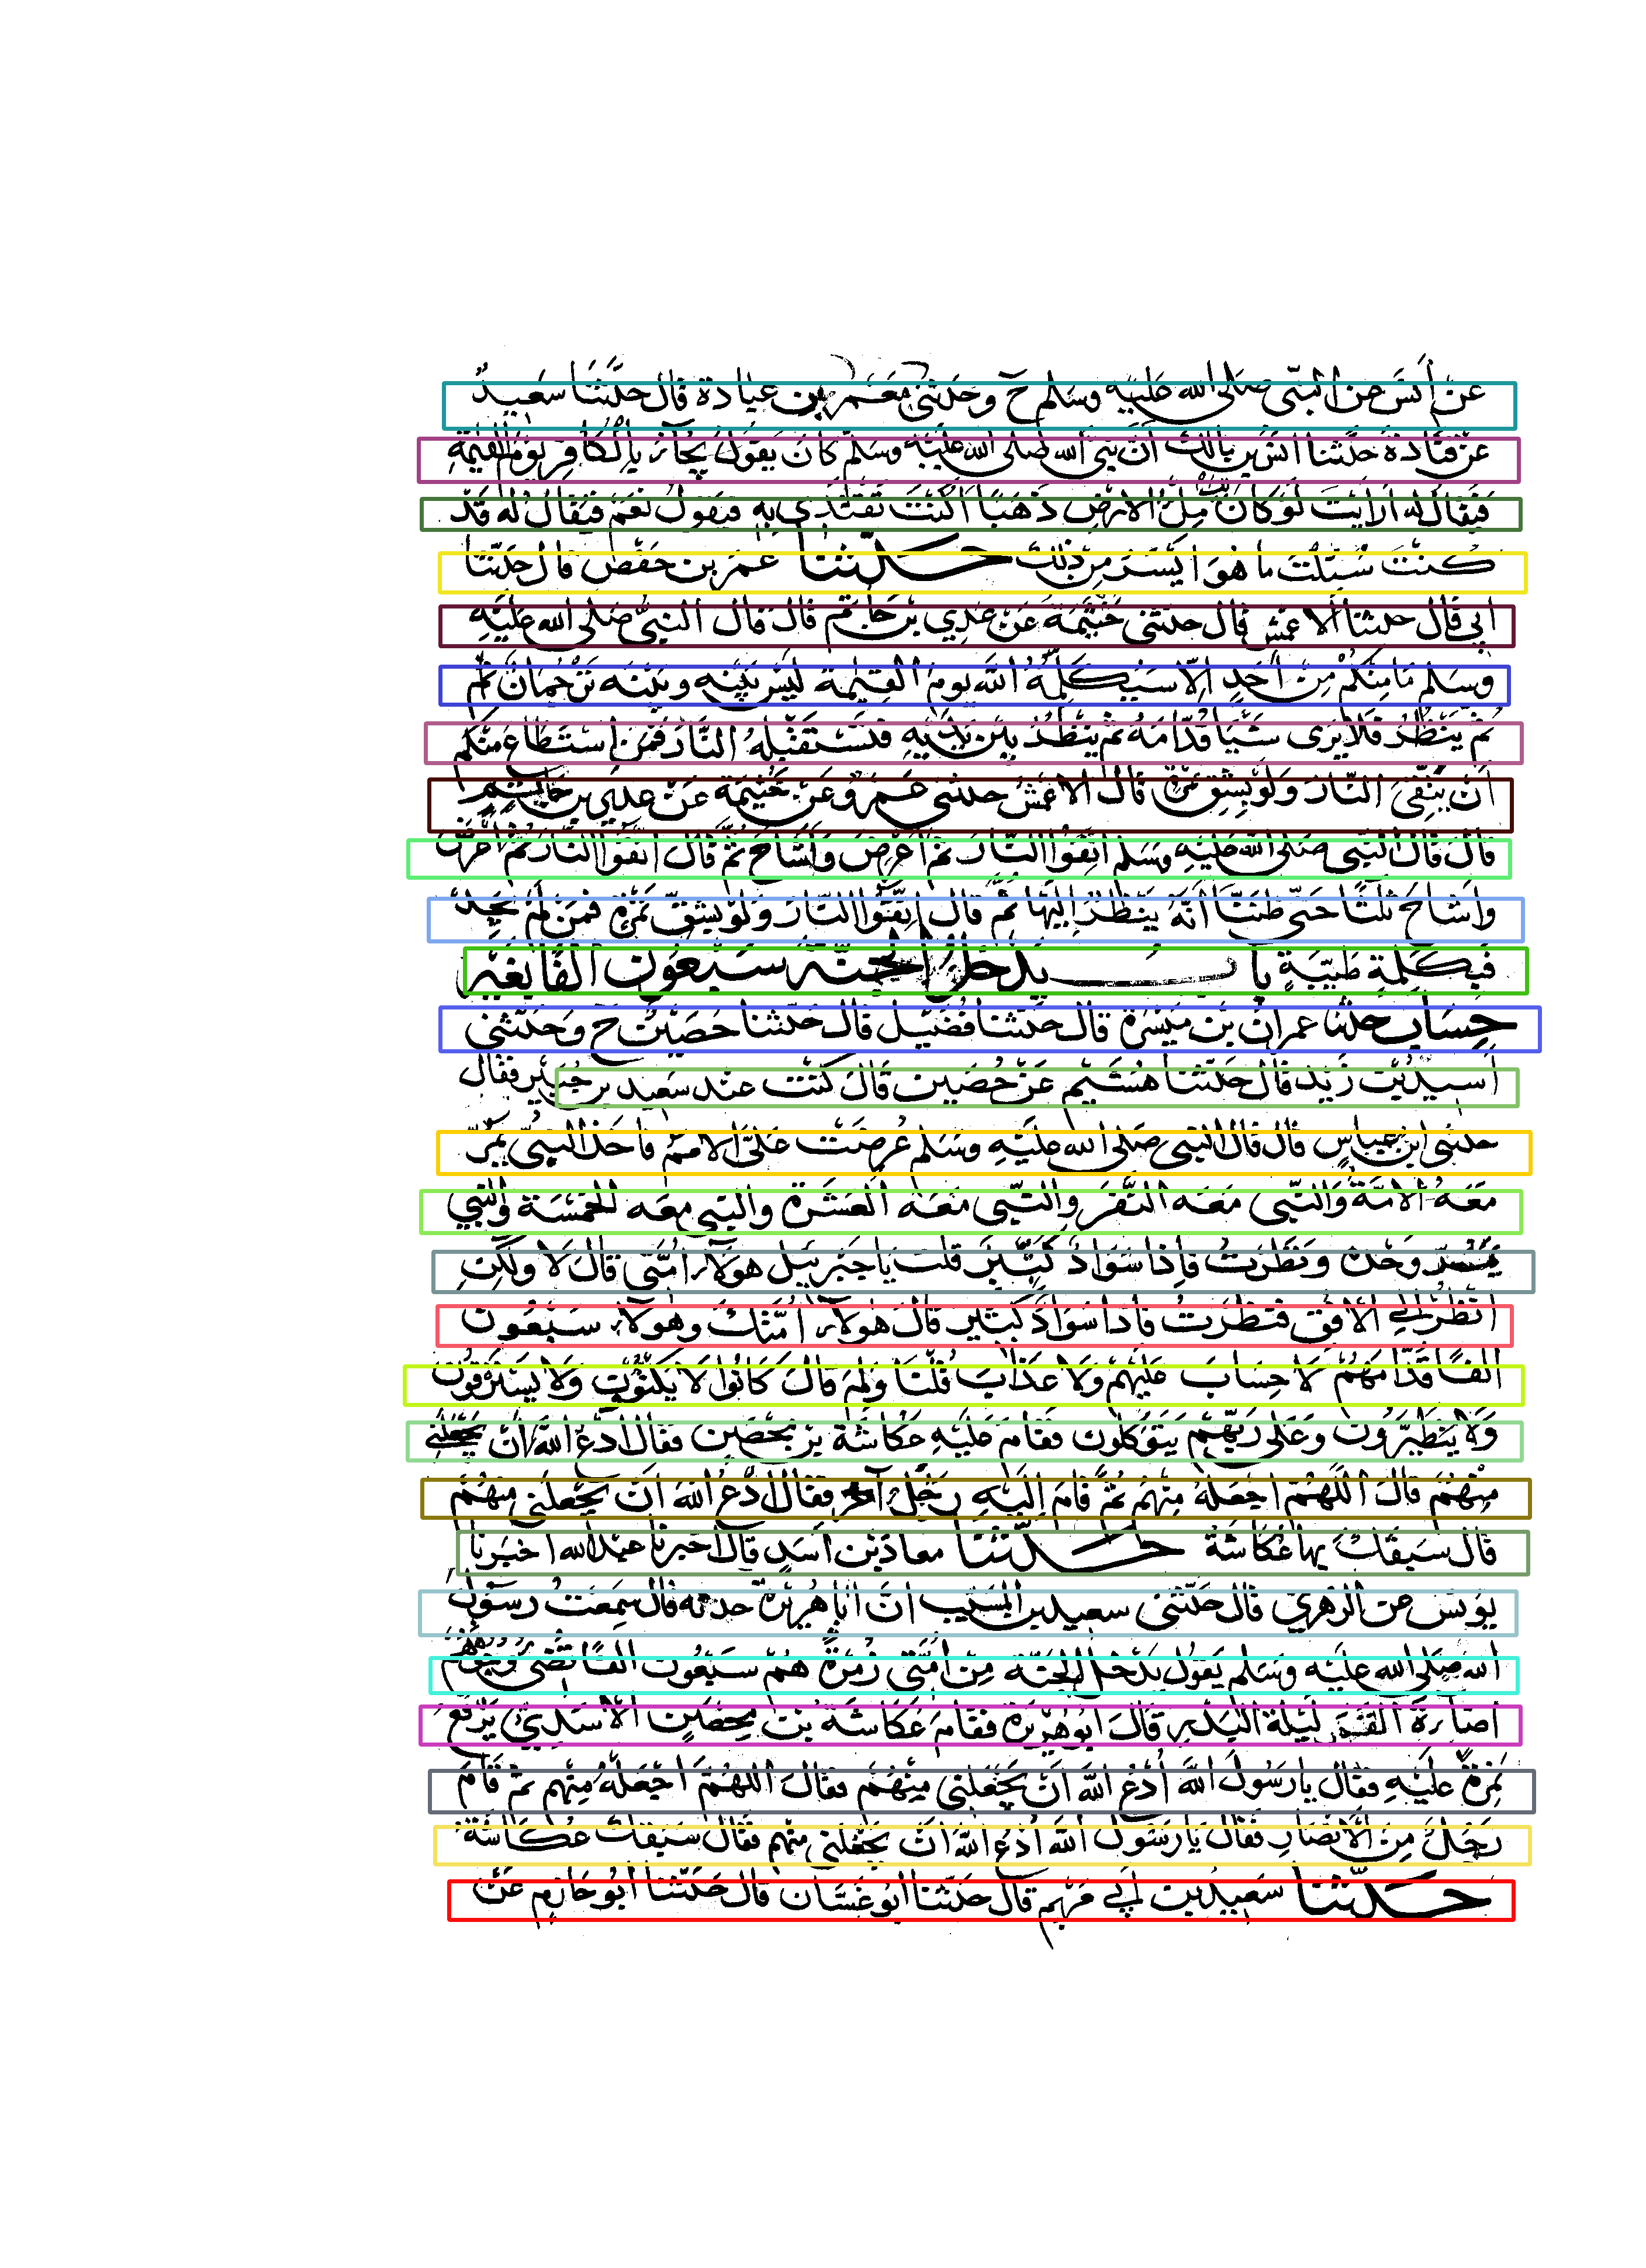 عن أنس عن النبي صلى الله عليه وسلم ح وحدثني معمر بن عبادة قال حدثنا سعيد
عن قتادة حدثنا انس بن مالك أن نبي الله صلى الله عليه وسلم كان يقول يجآء بالكافر يوم القيمة
فيقال له أرأيت لو كان لك ملء الارض ذهبا اكنت تفتدي به فيقول نعم فيقال له قد
كنت سئلت ما هو ايسر من ذلك حدثنا عمر بن حفص قال حدثنا
ابي قال حدثنا الاعمش قال حدثني خيثمة عن عدي بن حاتم قال قال النبي صلى الله عليه
وسلم ما منكم من أحد إلا سيكلمه الله يوم القيمة ليس بينه وبينه ترجمان ثم
ثم ينظر فلا يرى شيأ قدامه ثم ينظر بين يديه فتستقبله النار فمن استطاع منكم
أن يتقى النار ولو بشق تمرة قال الاعمش حدثني عمرو عن خيثمة عن عدي بن حاتم
قال قال النبي صلى الله عليه وسلم اتقوا النار ثم أعرض وأشاح ثم قال اتقوا النار ثم أعرض
وأشاح ثلثا حتى ظننا أنه ينظر إليها ثم قال اتقوا النار ولو بشق تمرة فمن لم يجد
فبكلمة طيبة باب يدخل الجنة سبعون الفا بغير
حساب حدثنا عمران بن ميسرة قال حدثنا فضيل قال حدثنا حصين ح وحدثني
اسيد بن زيد قال حدثنا هشيم عن حصين قال كنت عند سعيد بن جبير فقال
حدثني ابن عباس قال قال النبي صلى الله عليه وسلم عرضت على الامم فاخذ النبي يمر
معه الامة والنبي معه النفر والنبي معه العشرة والنبي معه الخمسة والنبي
يمر وحده ونظرت فإذا سواد كثير قلت يا جبريل هولآء امتي قال لا ولكن
انظر إلى الافق فنظرت فاذا سواد كثير قال هولآء امتك وهولآء سبعون
الفا قدامهم لا حساب عليهم ولا عذاب قلت ولم قال كانوا لا يكتوون ولا يسترقون
ولا يتطيرون وعلى ربهم يتوكلون فقام عليه عكاشة بن محصن فقال ادع الله ان يجعلني
منهم قال اللهم اجعله منهم ثم قام إليه رجل آخر فقال ادع الله ان يجعلني منهم
قال سبقك بها عكاشة حدثنا معاذ بن أسد قال اخبرنا عبد الله اخبرنا
يونس عن الزهري قال حدثني سعيد بن المسيب ان ابا هريرة حدثه قال سمعت رسول
الله صلى الله عليه وسلم يقول يدخل الجنة من امتي زمرة هم سبعون الفا تضئ وجوههم
اضآءة القمر ليلة البدر قال ابو هريرة فقام عكاشة بن محصن الاسدي يرفع
نمرة عليه فقال يا رسول الله أدع الله ان يجعلني منهم فقال اللهم اجعله منهم ثم قام
رجل من الانصار فقال يا رسول الله أدع الله ان يجعلني منهم فقال سبقك عكاشة
حدثنا سعيد بن ابي مريم قال حدثنا ابو غسان قال حدثنا ابو حازم عن